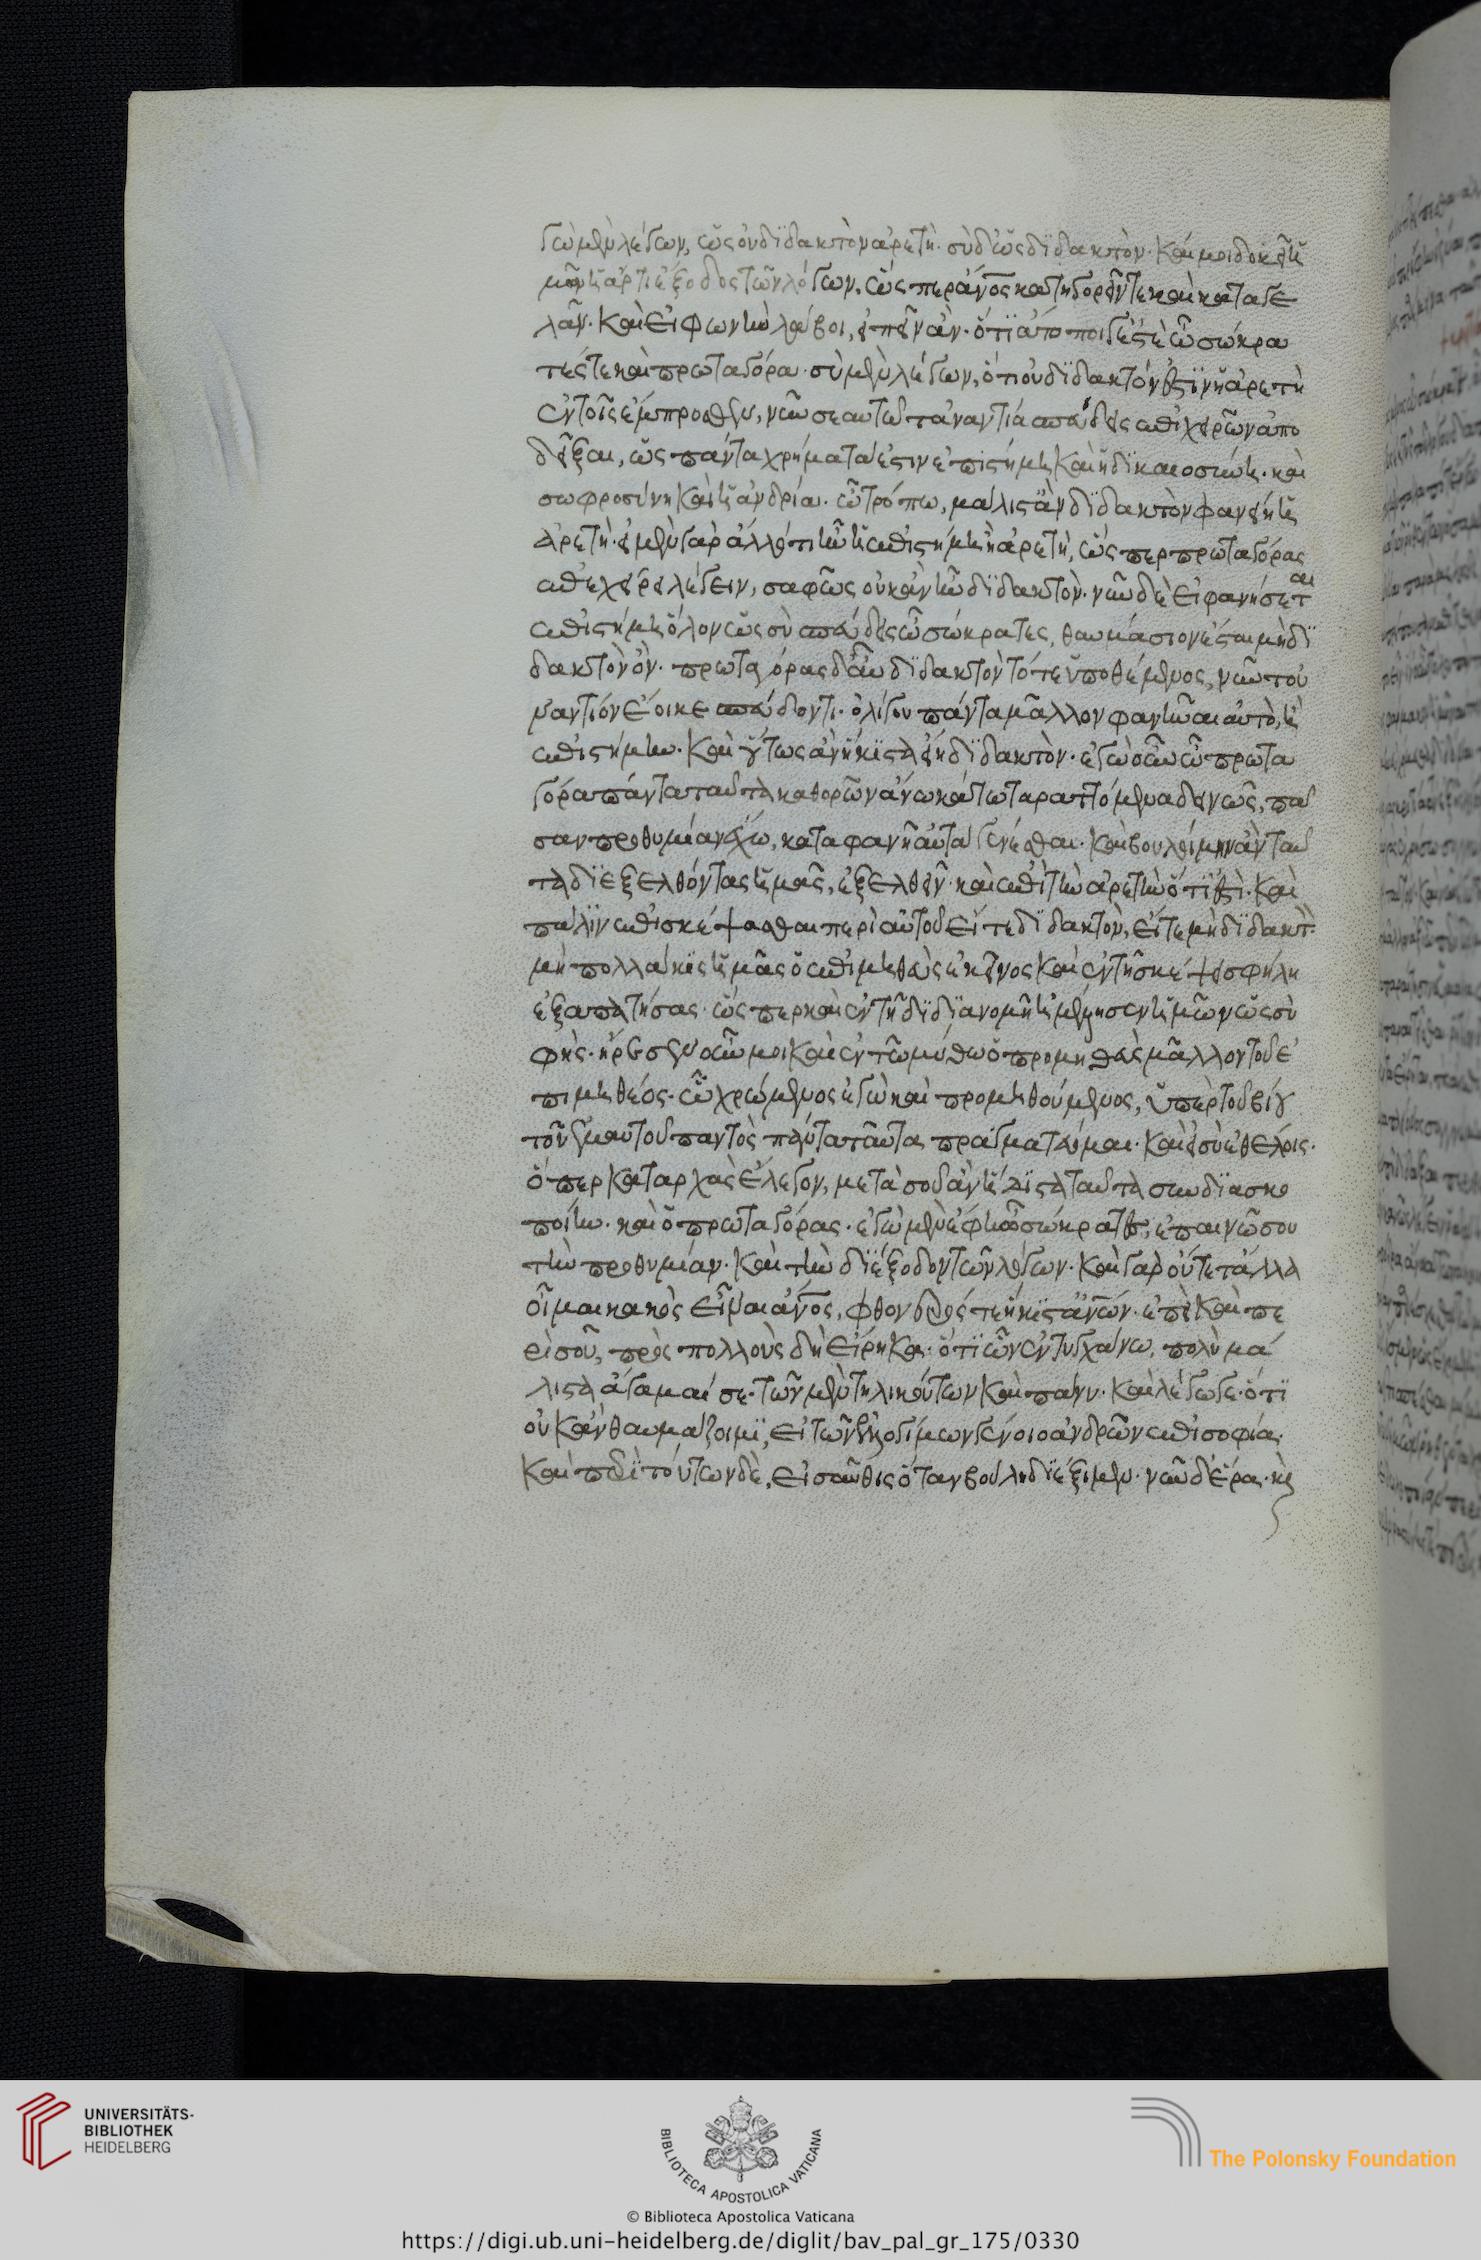 γὼ μὲν λέγων, ὡς οὐ διδακτὸν ἀρετή. σὺ δ' ὡς διδακτὸν. καί μοι δοκεῖ ἡ
μῶν ἡ ἄρτι ἔξοδος τῶν λόγων, ὥσπερ ἄνος κατηγορεῖν τε καὶ καταγε
λᾶν. καὶ εἰ φωνὴν λάβοι, εἰπεῖν ἄν. ὅτι ἄτοποί γ' ἐστὲ ὦ σώκρα
τές τε καὶ πρωταγόρα. σὺ μὲν λέγων, ὅτι οὐ διδακτόν ἐστιν ἡ ἀρετὴ
ἐν τοῖς ἔμπροσθεν, νῦν σεαυτῶ τἀναντία σπεύδεις ἐπιχειρῶν ἀπο
δεῖξαι, ὡς πάντα χρήματά ἐστιν ἐπιστήμη καὶ ἡ δικαιοσύνη. καὶ
σωφροσύνη καὶ ἡ ἀνδρία. ὧ τρόπω, μάλιστ' ἂν διδακτὸν φανείη ἡ
ἀρετὴ. εἰ μὲν γὰρ ἄλλό τι ἦν ἢ ἐπιστήμη ἡ ἀρετὴ, ὥσπερ πρωταγόρας
ἐπεχείρει λέγειν, σαφῶς οὐκ ἂν ἦν διδακτὸν. νῦν δὲ εἰ φανήσεται
ἐπιστήμη ὅλον ὡς σὺ σπεύδεις ὦ σώκρατες, θαυμάσιον ἔσται μὴ δι
δακτὸν ὄν. πρωταγόρας δ' αὖ διδακτὸν τότε ὑποθέμενος, νῦν τοὐ
ναντίον ἔοικε σπεύδοντι. ὀλίγου πάντα μᾶλλον φανῆναι αὐτὸ, ἢ
ἐπιστήμην. καὶ οὕτως ἂν ἥκιστα εἴη διδακτὸν. ἐγὼ οὖν ὦ πρωτα
γόρα πάντα ταῦτα καθορῶν ἄνω κάτω ταραττόμενα δεινῶς, πᾶ
σαν προθυμίαν ἔχω, καταφανῆ αὐτὰ γενέσθαι. καὶ βουλοίμην ἂν ταῦ
τα διεξελθόντας ἡμᾶς, ἐξελθεῖν. καὶ ἐπὶ τὴν ἀρετὴν ὅτι ἐστὶ. καὶ
πάλιν ἐπισκέψασθαι περὶ αὐτοῦ εἴτε διδακτὸν, εἴτε μὴ διδακτ.
μὴ πολλάκις ἡμᾶς ὁ ἐπιμηθεὺς ἐκεῖνος καὶ ἐν τῆ σκέψει σφήλη
ἐξαπατήσας. ὥσπερ καὶ ἐν τῆ διδιανομῆ ἠμέλησεν ἡμῶν ὡς σὺ
φής. ἤρεσεν οὖν μοι καὶ ἐν τῶ μύθω ὁ προμηθεὺς μᾶλλον τοῦ ἐ
πιμηθέος. ὧ χρώμενος ἐγὼ καὶ προμηθούμενος, ὑπὲρ τοῦ βίου
τοῦ ἐμαυτοῦ παντὸς πάντα ταῦτα πραγματεύομαι. καὶ εἰ σὺ ἐθέλοις.
ὅπερ κατ' ἀρχὰς ἔλεγον, μετὰ σοῦ ἂν ἥδιστα ταῦτα συνδιασκο
ποίην. καὶ ὁ πρωταγόρας. ἐγὼ μὲν ἔφη ὦ σώκρατες, ἐπαινῶ σου
τὴν προθυμίαν. καὶ τὴν διέξοδον τῶν λόγων. καὶ γὰρ οὔτε τἄλλα
οἶμαι κακὸς εἶναι ἄνος, φθονερός τε ἥκιστ' ἀνῶν. ἐπεὶ καὶ πε
ρὶ σοῦ, πρὸς πολλοὺς δὴ εἴρηκα. ὅτι ὧν ἐντυγχάνω, πολὺ μά
λιστα ἄγαμαί σε. τῶν μὲν τηλικούτων καὶ πάνυ. καὶ λέγω γε. ὅτι
οὐκ ἂν θαυμάζοιμι, εἰ τῶν ἐλλογίμων γένοιο ἀνδρῶν ἐπὶ σοφία.
καὶ περὶ τούτων δὲ, εἰσαῦθις ὅταν βούλη διέξιμεν. νῦν δ' ὥρα. κὶ
UNIVERSITÄTS-
BIBLIOTHEK
HEIDELBERG
BIBLIOTECA APOSTOLICA VATICANA
The Polonsky Foundation
© Biblioteca Apostolica Vaticana
https://digi.ub.uni-heidelberg.de/diglit/bav_pal_gr_175/0330